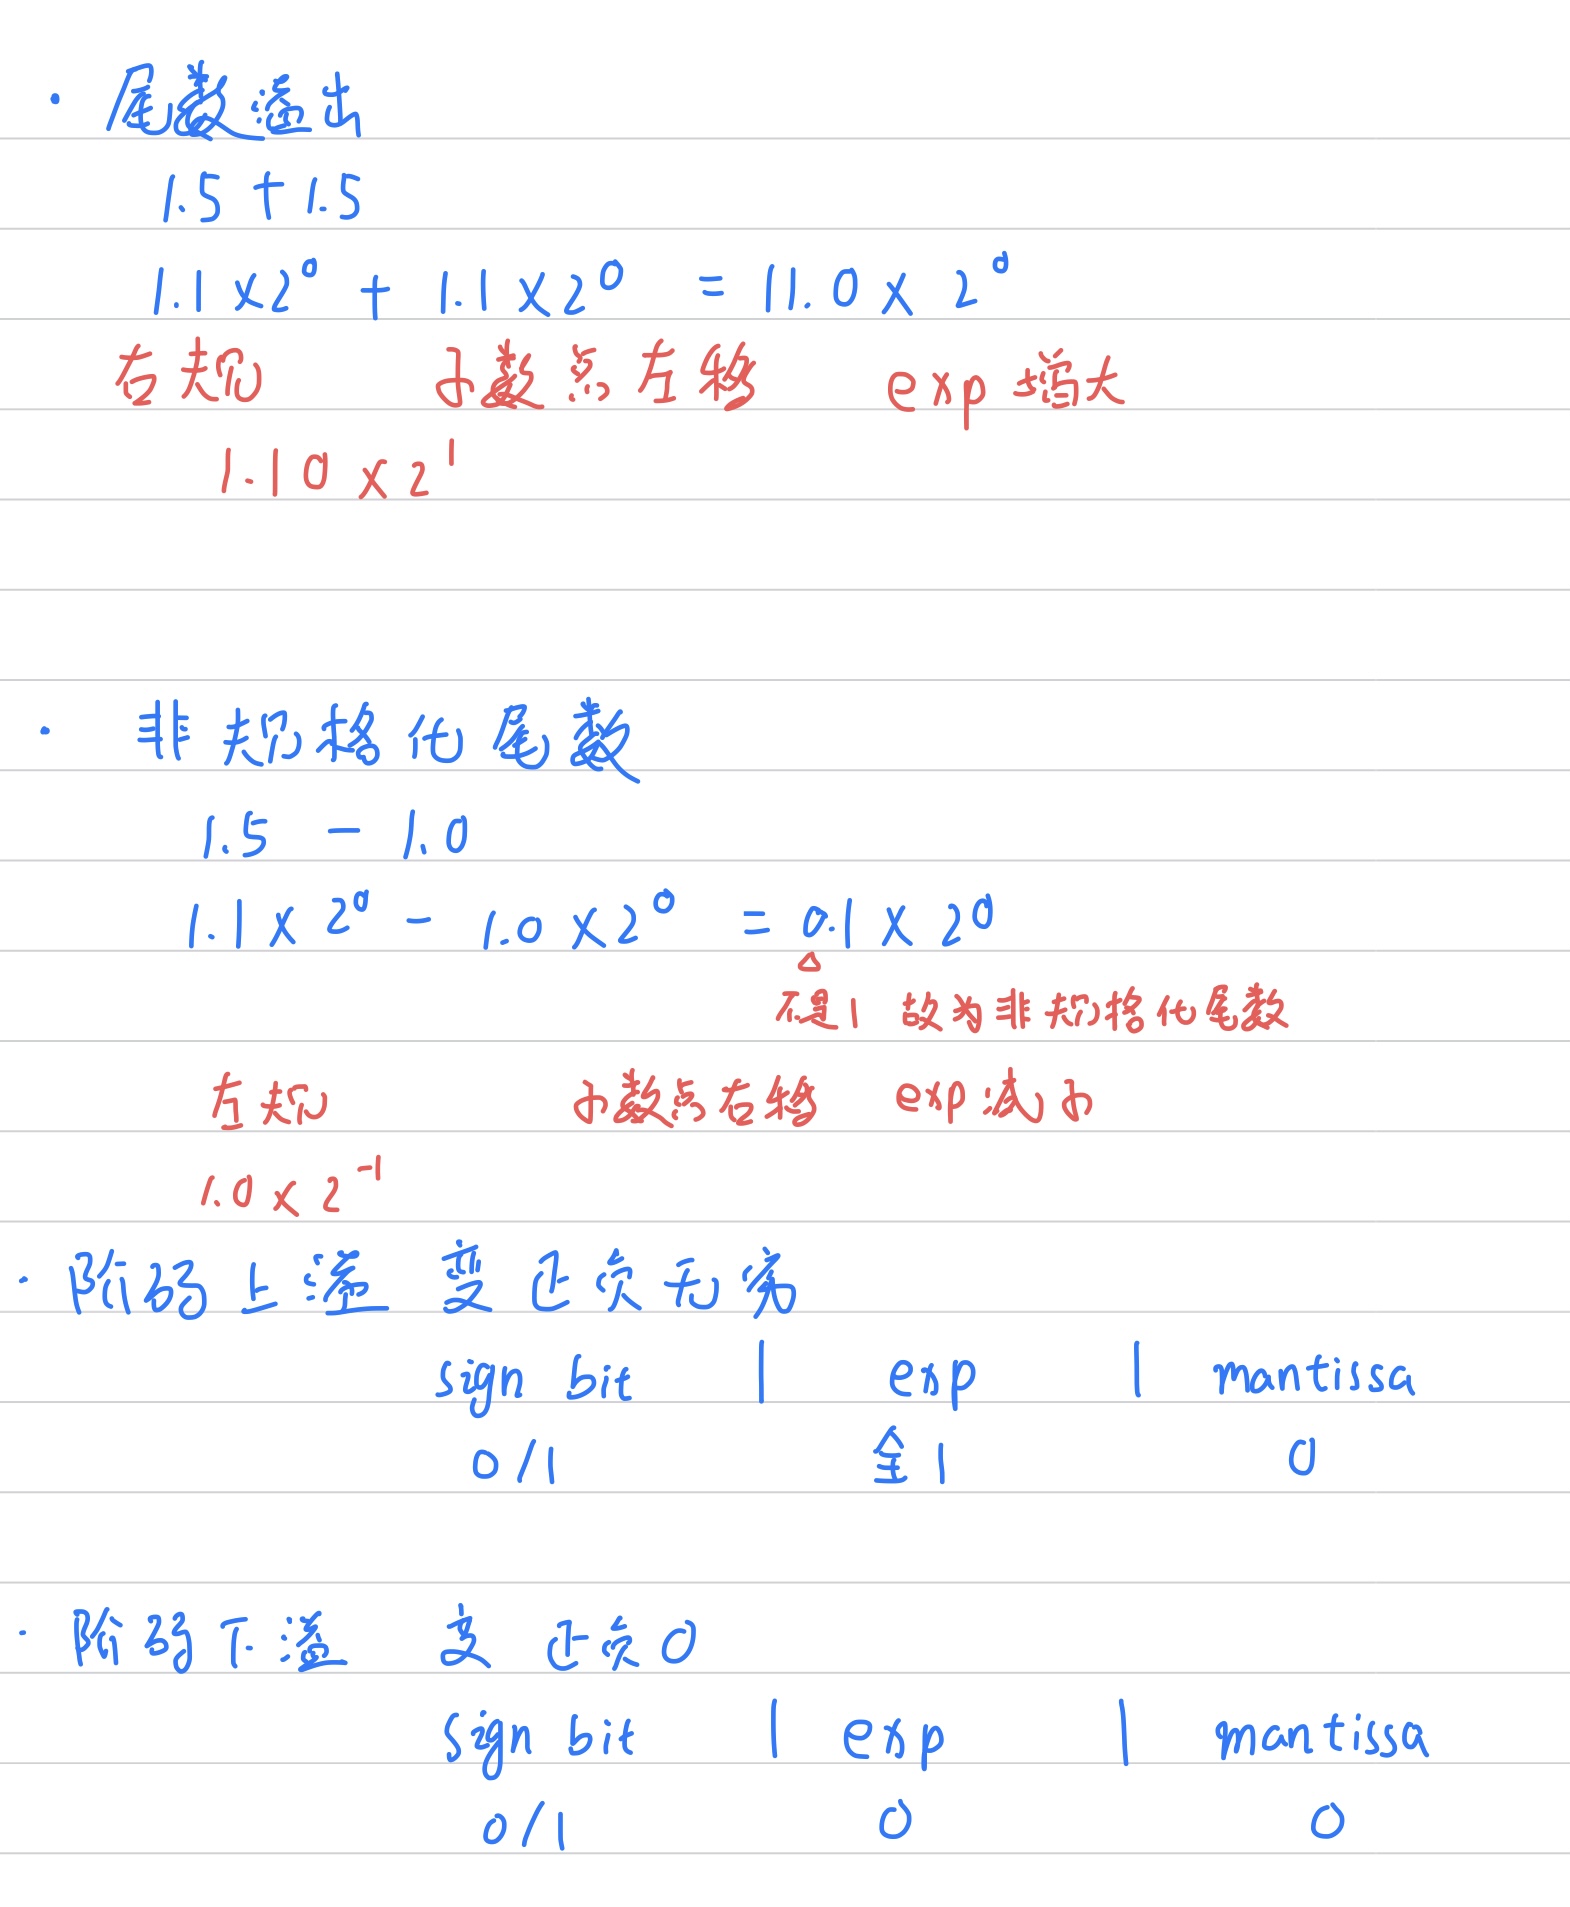 · 尾数溢出
1.5 + 1.5
1.1 × 2⁰ + 1.1 × 2⁰ = 11.0 × 2⁰
右规 小数点左移 exp 增大
1.10 × 2¹
· 非规格化尾数
1.5 - 1.0
1.1 × 2⁰ - 1.0 × 2⁰ = 0.1 × 2⁰
△
不是1 故为非规格化尾数
左规 小数点右移 exp 减小
1.0 × 2⁻¹
· 阶码上溢 变正负无穷
sign bit | exp | mantissa
0/1 全1 0
· 阶码下溢 变 正负0
sign bit | exp | mantissa
0/1 0 0